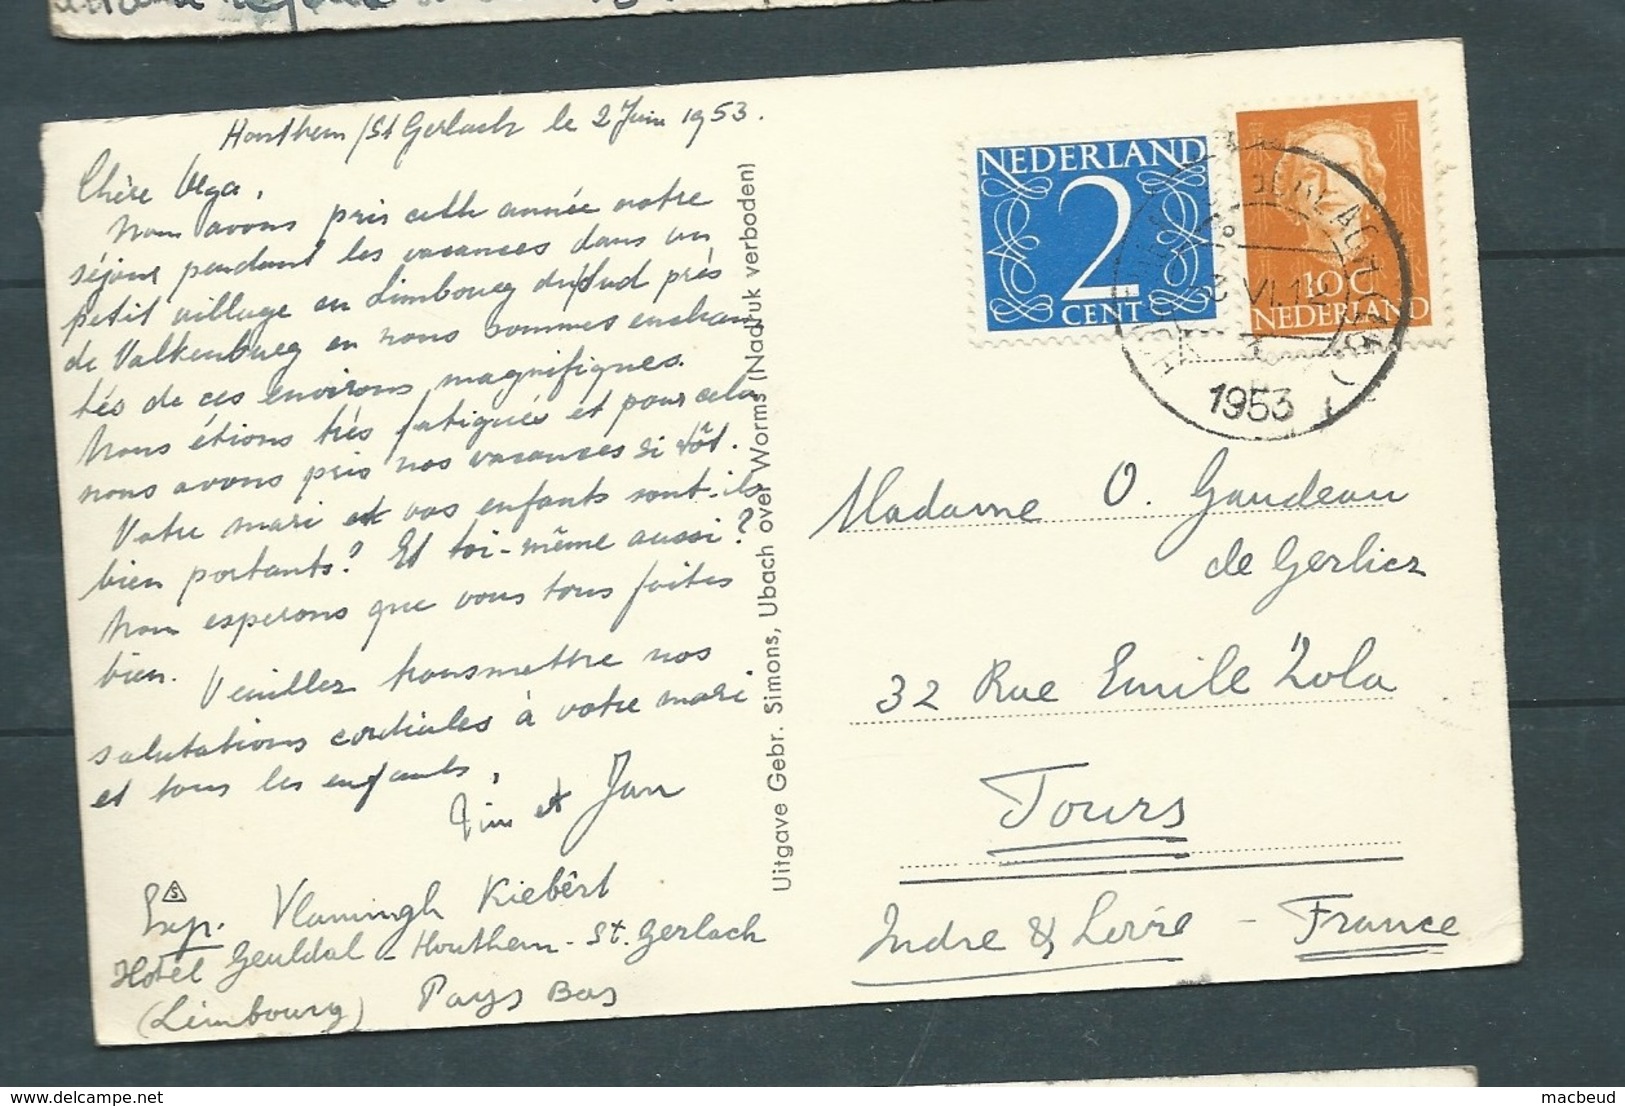 Houthem/St Gerlach le 2 Juin 1953.
Chère Olga,
Nous avons pris cette année notre
séjour pendant les vacances dans un
petit village en Limbourg du Sud près
de Valkenburg en nous sommes enchan
tés de ces environs magnifiques.
Nous étions très fatigués et pour cela
nous avons pris nos vacances si tôt.
Votre mari et vos enfants sont-ils
bien portants? Et toi-même aussi?
Nous esperons que vous tous faites
bien. Veuillez transmettre nos
salutations cordiales à votre mari
et tous les enfants,
et Jan
Exp. Vlamingh Kiebêrt
Hotel Geuldal - Houthem-St. Gerlach
(Limbourg) Pays Bas
S
Uitgave Gebr. Simons, Ubach over Worms (Nadruk verboden)
NEDERLAND
2
CENT
10 C
NEDERLAND
GERLACH
VI.12
1953
Madame O. Gaudeau
de Gerlicz
32 Rue Emile Zola
Tours
Indre & Loire - France
macbeud